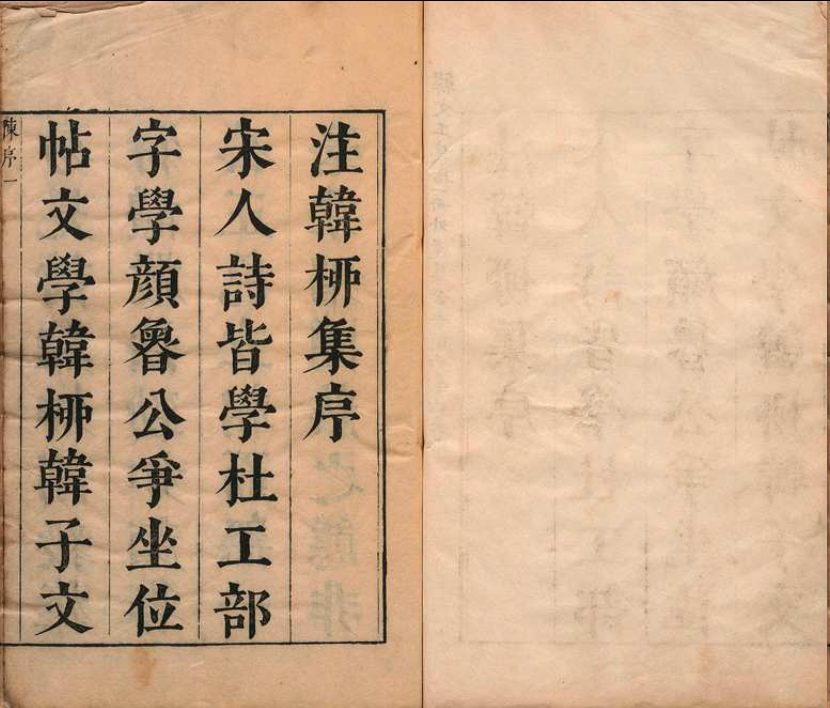 注韓栁集序
宋人詩皆學杜工部
字學顔魯公爭坐位
帖文學韓栁韓子文
陳序一